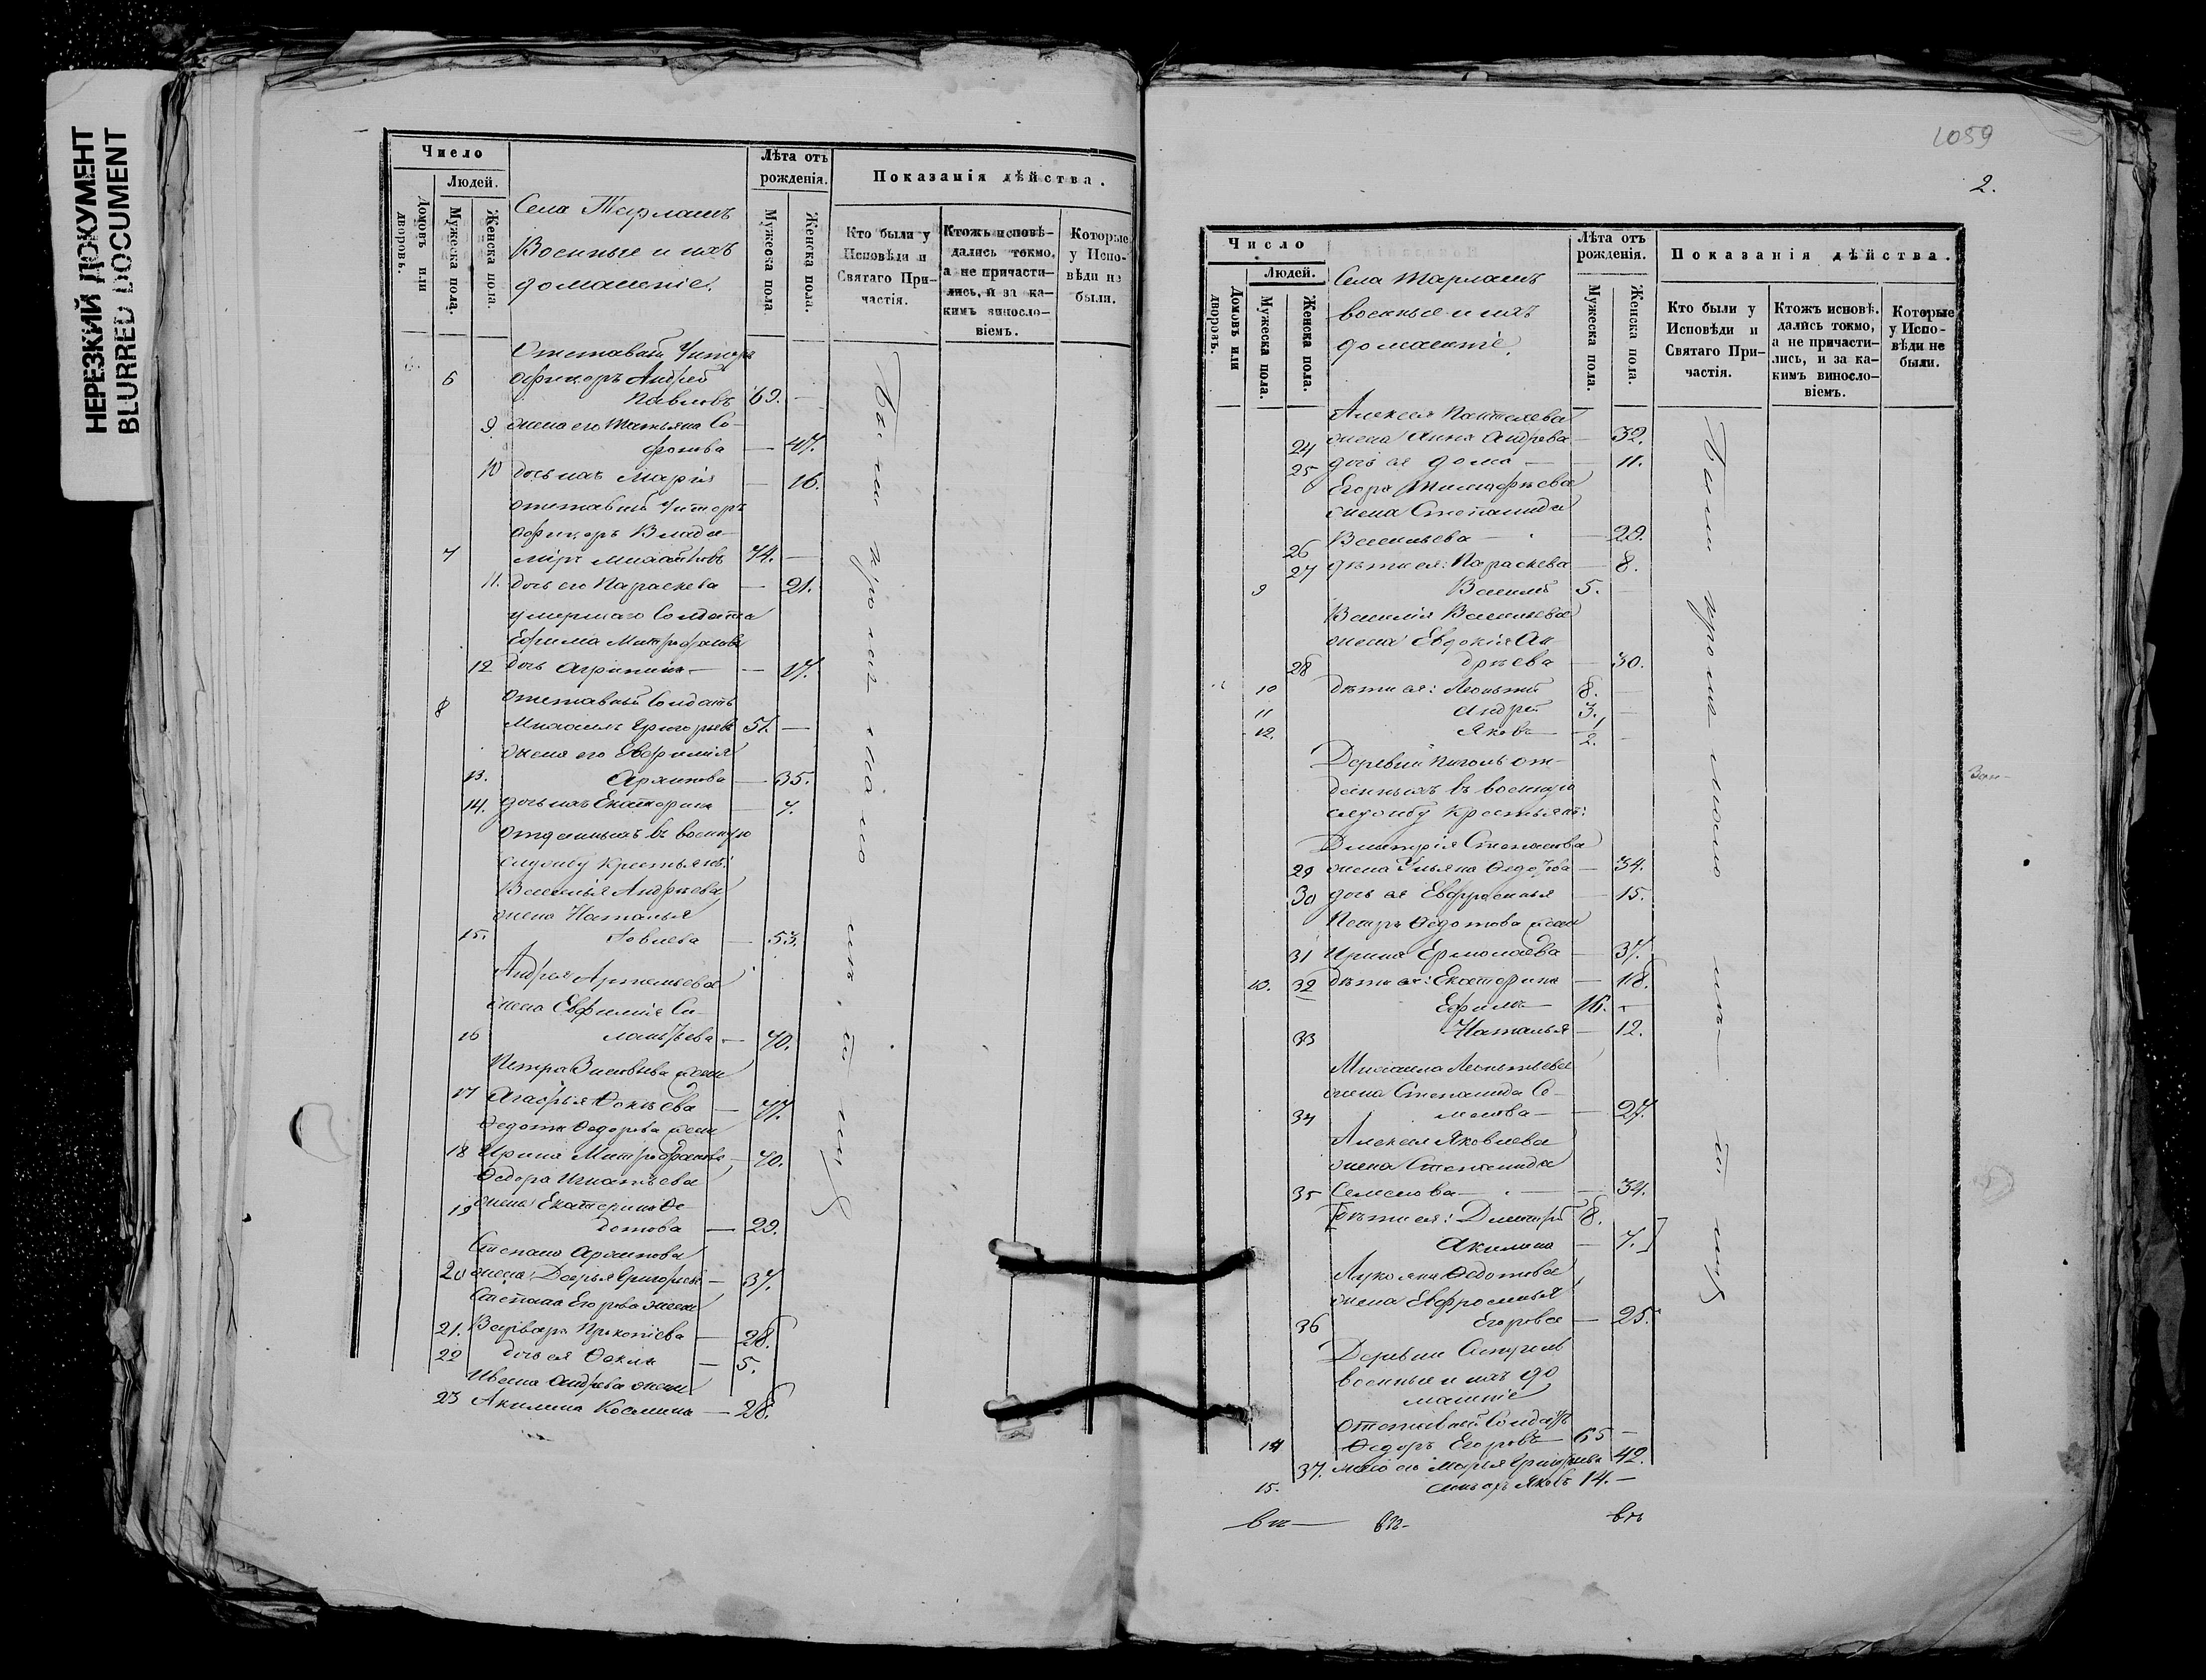 НЕРЕЗКИЙ ДОКУМЕНТ
BLURRED DOCUMENT
Число
Людей.
Домовъ или дворовъ.
Мужеска пола.
Женска пола.
Села Тарлашъ
Военные и ихъ
домашніе.
Лѣта отъ рожденія.
Мужеска пола
Женска пола.
Показанія дѣйства.
Кто были у Исповѣди и Святаго Причастія.
Ктожъ исповѣдались токмо, а не причастились, и за какимъ винословіемъ.
Которые у Исповѣди не были.
Отставный Унтеръ
6 офицеръ Андрей
Павловъ 69. —
9 жена его Татьяна Со-
фонова — 47.
10 дочь ихъ Марія — 16.
отставный Унтеръ
офицеръ Влади-
7 міръ Михайловъ 74. —
11. дочь его Параскева — 21.
умершаго Солдата
Ефима Митрофанова
12 дочь Агрипина — — 17.
8 Отставный Солдатъ
Михаилъ Григорьевъ 51. —
жена его Евфимія
13. Архипова — 35.
14. дочь ихъ Екатерина — 7.
Отданныхъ въ военную
службу крестьянъ:
Василья Андреева
жена Наталья
15. Іовлева — 53.
Андрея Артемьева
жена Евфимія Си-
16 лантьева — 40.
Петра жена
17 Агафья Фокѣева — 47.
Ѳедота Ѳедорова жена
18 Ирина Митрофанова — 40.
Ѳедора Игнатьева
19 жена Екатерина Ѳе-
дотова — 29.
Степана Архипова
20 жена Дарья Григорьева — 37.
Степана Егорова жена
21. Варвара Прокопіева — 28.
22 дочь ея Ѳекла — 5.
Ивана Андреева жена
23 Акилина Космина — 28.
1059
2.
Число
Людей.
Домовъ или дворовъ.
Мужеска пола.
Женска пола.
Села Тарлашъ
военные и ихъ
домашніе.
Лѣта отъ рожденія.
Мужеска пола.
Женска пола.
Показанія дѣйства.
Кто были у Исповѣди и Святаго Причастія.
Ктожъ исповѣдались токмо, а не причастились, и за какимъ винословіемъ.
Которые у Исповѣди не были.
Алексея Пантелеева
24 жена Анна Андреева — 32.
25 дочь ея — — 11.
Егора Тимофѣева
жена Степанида
26 Васильева — — 29.
27 дѣти ея: Параскева — 8.
9 Василій 5. —
Василія Васильева
жена Евдокія Ан
28 дрѣева — 30.
10 дѣти ея: Леонтій 8. —
11 Андрей 3. —
12. Яковъ — 1/2. —
Деревни от-
данныхъ въ военную
службу крестьянъ:
Димитрія Степанова
29 жена Ульяна Ѳедотова — 34.
30 дочь ея Евфросинья — 15.
Петръ Ѳедотова жена
31 Ирина Ермолаева — 37.
10. 32 дѣти ея: Екатерина — 18.
Ефимъ — 16. —
33 Наталья — 12.
Михаила Леонтьева
жена Степанида Се-
34 менова — — 27.
Алексея Яковлева
жена Степанида
35 Семенова — — 34.
[дѣти ея: Димитрій 8.
Акилина — 7.]
Лукояна Ѳедотова
жена Евфросинья
36 Егорова — 25.
Деревни
военные и ихъ до
машніе
Отставный Солдатъ
14 Ѳедоръ Егоровъ — 65 —
37. жена его Марья Григорьева 42.
15. сынъ ихъ Яковъ 14. —